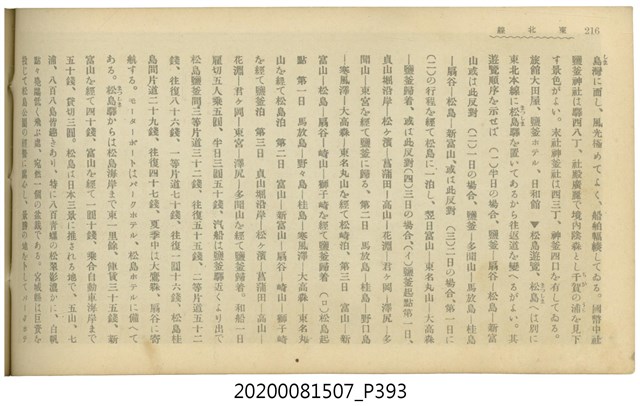 東北線
216
島灣に面し、風光極めてよく、船舶輻輳してゐる。國幣中社
鹽釜神社は驛西八丁、社殿廣麗で、境內隆森として千賀の浦を見下
す景色がよい。末社神釜社は西三丁、神釜四口を有してゐる。
旅館大田屋、鹽釜ホテル、日和館 ▼松島遊覽、松島へは別に
東北本線に松島驛を置いてあるから往返道を變へるがよい。其
遊覽順序を示せば(一)半日の場合、鹽釜―扇谷―松島―新富
山或は此反對(二)一日の場合、鹽釜―多聞山―馬放島―桂島
―扇谷―新富山、或は此反對(三)二日の場合、第一日に
(二)の行程を經て松島に一泊し、翌日富山―東名丸山―大高森
―鹽釜歸着、或は此反對(四)三日の場合(イ)鹽釜起點第一日、
貞山堀沿岸―松ヶ濱―菖蒲田―高山―花淵―君ヶ岡―澤尻―多
聞山―東宮を經て鹽釜に歸る、第二日 馬放島―桂島―野口島
―寒風澤―大高森―東名丸山を經て松崎泊、第三日 富山―新
富山―松島―扇谷―崎山―獅子崎を經て鹽釜歸着 (ロ)松島起
點 第一日 馬放島―野々島―桂島―寒風澤―大高森―東名丸
山を經て松島泊 第二日 富山―新富山―扇谷―崎山―獅子崎
を經て鹽釜泊 第三日 貞山堀沿岸―松ヶ濱―菖蒲田―高山―
花淵―君ヶ岡―東宮―澤尻―多聞山を經て鹽釜歸着。和船一日
雇切五人乘五圓、半日三圓五十錢、汽船は鹽釜驛近くより出で
松島鹽釜間三等片道三十二錢、往復五十五錢、二等片道五十二
錢、往復八十六錢、一等片道七十錢、往復一圓十六錢、松島桂
島間片道二十九錢、往復四十七錢、夏季中は大鷹森、扇谷に寄
航する。モーターボートはパークホテル、松島ホテルに備へて
ある。松島驛からは松島海岸まで東一里餘、俥賃三十五錢、新
富山を經て四十錢、富山を經て一圓十錢、乘合自動車海岸まで
五十錢、貸切三圓。松島は日本三景に推される地で、五山、七
浦、八百八島管絕きあり、特に八百靑螺の松翠影濃かに、白帆
點々鷗鳥低く飛ぶ處、宛然一個の盆蔵である。宮城縣は巨資を
投じて松島公園の經營に腐心し、
20200081507_P393